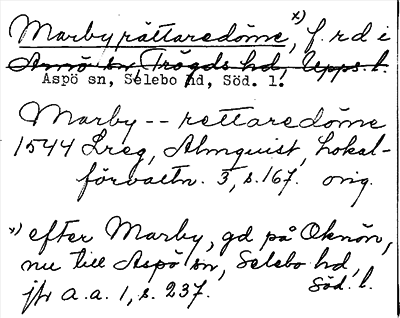 Marby rättaredöme, x) f. r d i
Arnö sn, Trögds hd, Upps. l.
Aspö sn, Selebo hd, Söd. l.
Marby -- rettaredöme
1544 Lreg, Almquist, Lokal-
förvaltn. 3, s. 167. orig.
x) efter Marby, gd på Oknön,
nu till Aspö sn, Selebo hd,
jfr a. a. 1, s. 237. Söd. l.